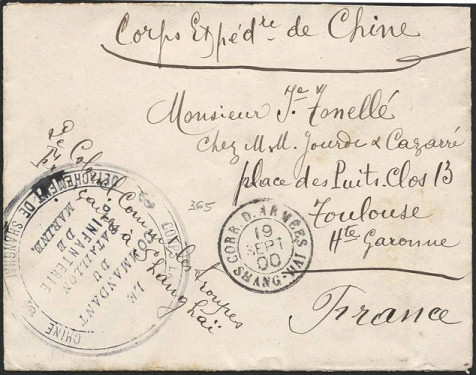 Corps Expéd.re de Chine
Monsieur Je Tonellé
Chez M.M. Jourde & Cazarré
place des Puits. Clos 13
Toulouse
Hte Garonne
France
365
CORR. D. ARMÉES
19
SEPT
00
SHANG-HAI
LE
COMMANDANT
DU
BATAILLON
D'INFANTERIE
DE
MARINE
DÉTACHEMENT DE SHANGHAI
CHINE
Le
Colonel Comm. des troupes
fçaises à Shanghaï